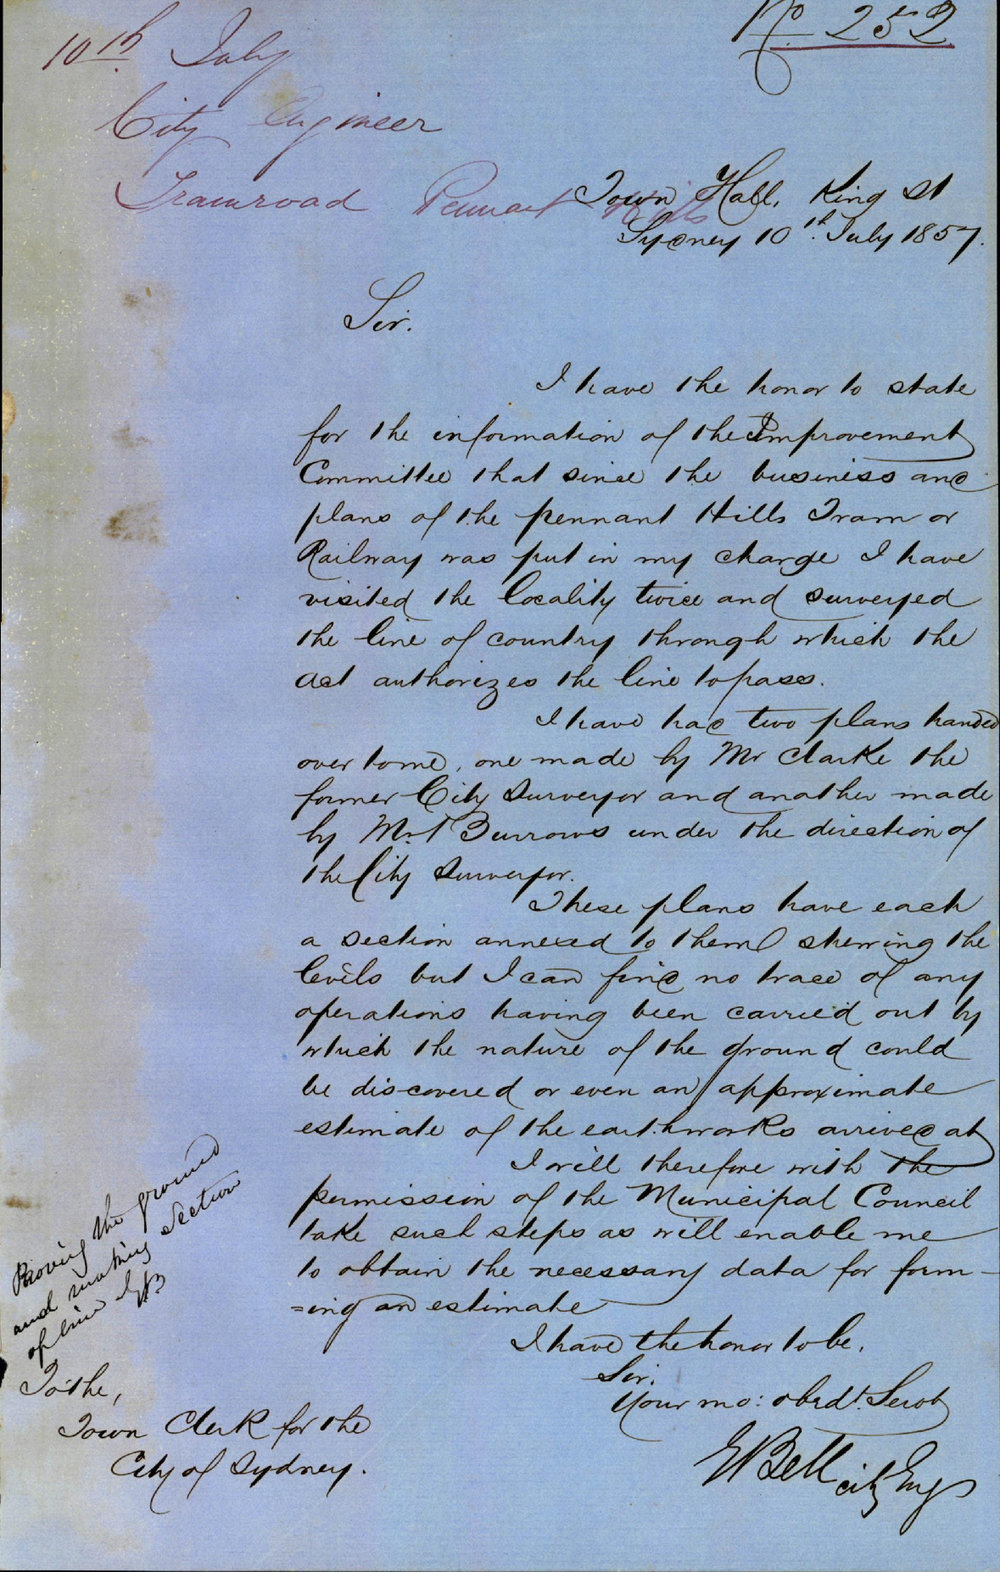 No. 252
10th July
City Engineer
Tramroad Pennant Hills
Town Hall, King St
Sydney 10th. July 1857.
Sir.
I have the honor to state
for the information of the Improvement
Committee that since the business and
plans of the pennant Hills Tram or
Railway was put in my charge I have
visited the locality twice and surveyed
the line of country through which the
act authorizes the line to pass.
I have had two plans handed
over to me, one made by Mr Clarke the
former City Surveyor and another made
by Mr Burrows under the direction of
the City Surveyor.
These plans have each
a section annexed to them shewing the
levels but I can find no trace of any
operations having been carried out by
which the nature of the ground could
be discovered or even an approximate
estimate of the earthworks arrived at
I will therefore with the
permission of the Municipal Council
take such steps as will enable me
to obtain the necessary data for form-
=ing an estimate
I have the honor to be,
Sir.
Your mo: obedt. Servt
EBell city Eng
Proving the ground
and making section
of line EB
To the,
Town Clerk for the
City of Sydney.